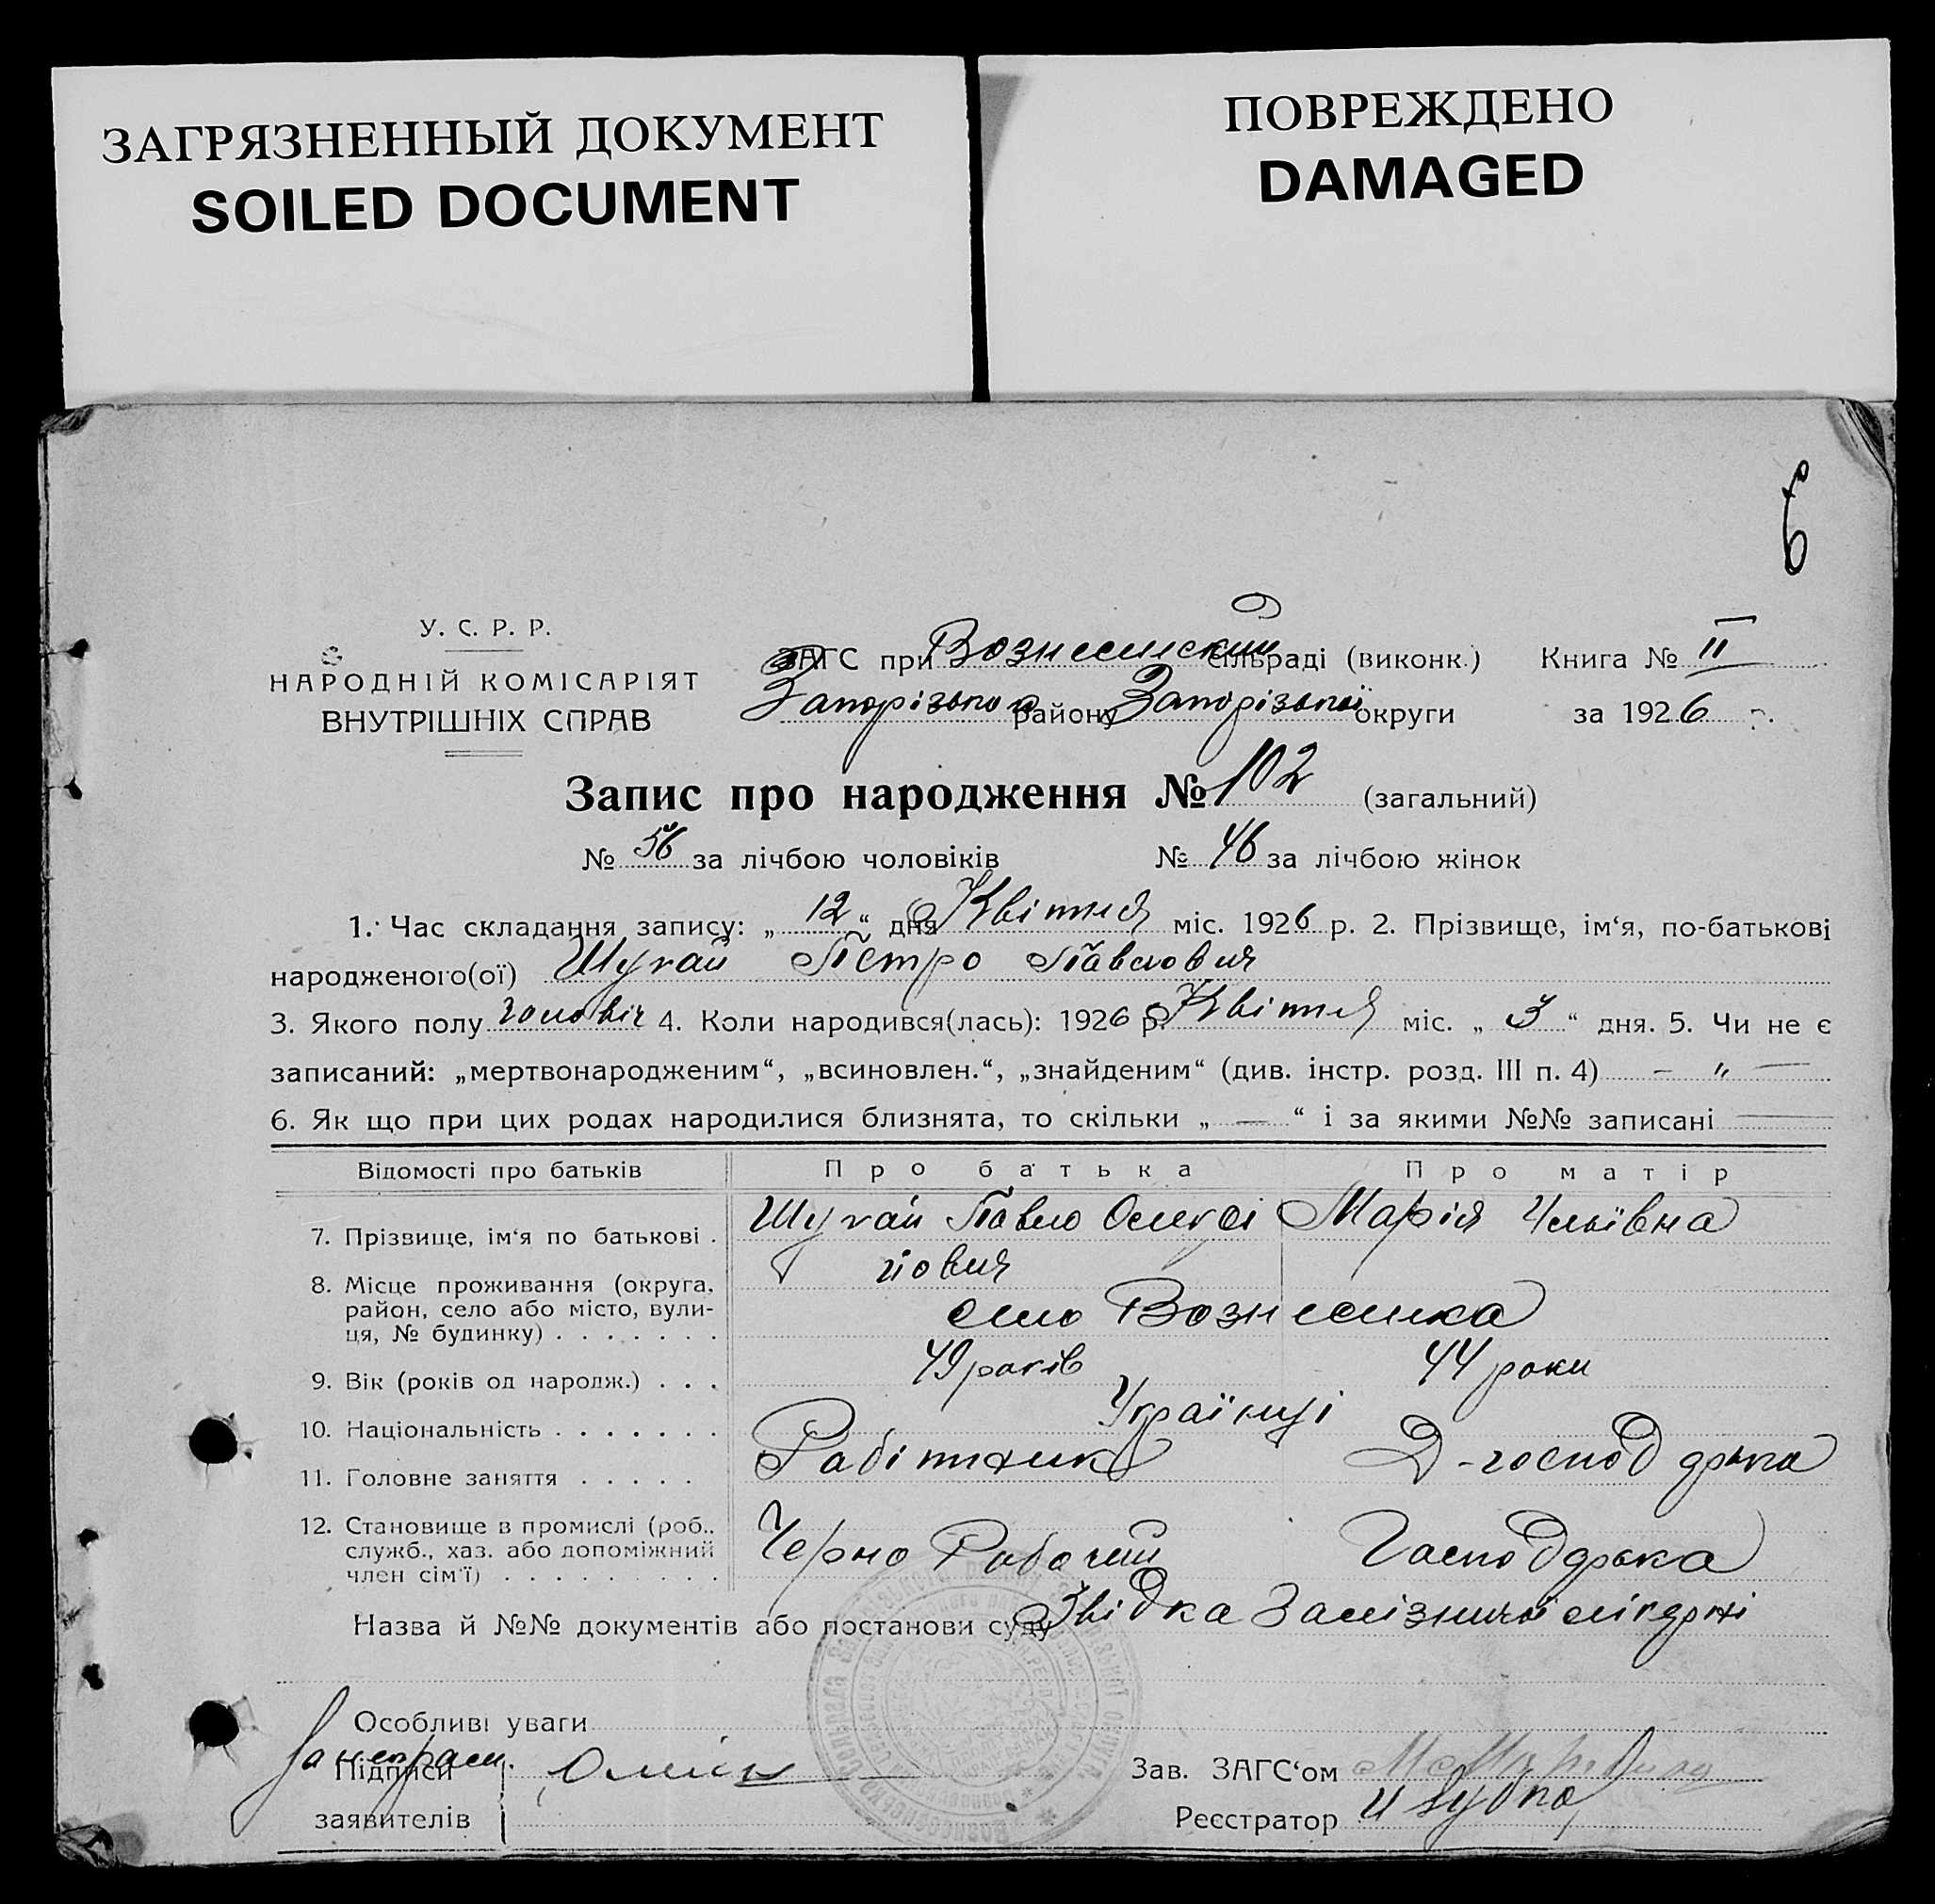 ЗАГРЯЗНЕННЫЙ ДОКУМЕНТ
SOILED DOCUMENT
ПОВРЕЖДЕНО
DAMAGED
У. С. Р. Р.
НАРОДНІЙ КОМІСАРІЯТ
ВНУТРІШНІХ СПРАВ
ЗАГС при Вознесенский сільраді (виконк.) Книга № II
Запорізького району Запорізької округи за 1926 р.
Запис про народження № 102 (загальний)
№ 56 за лічбою чоловіків № 46 за лічбою жінок
1. Час складання запису: „ 12 “ дня Квітня міс. 1926 р. 2. Прізвище, ім‘я, по-батькові
народженого(ої) Шукай Петро Павлович
3. Якого полу чоловіч 4. Коли народився(лась): 1926 р. Квітня міс. „ 3 “ дня. 5. Чи не є
записаний: „мертвонародженим“, „всиновлен.“, „знайденим“ (див. інстр. розд. III п. 4) – „ —
6. Як що при цих родах народилися близнята, то скільки „ — “ і за якими №№ записані
Відомості про батьків Про батька Про матір
7. Прізвище, ім‘я по батькові . Шукай Павло Олексі Марія Ільївна
йович
8. Місце проживання (округа,
район, село або місто, вули-
ця, № будинку) . . . . . . . село Вознесенка
9. Вік (років од народж.) . . . 49 років 44 роки
10. Національність . . . . . . . Українці
11. Головне заняття . . . . . Робітник Д-господарка
12. Становище в промислі (роб.,
служб., хаз. або допоміжний
член сім‘ї) . . . . . . . . . Черно Рабочий Господарка
Назва й №№ документів або постанови суду Звідка Залізничої лікарні
Особливі уваги
Підписи
заявителів
Зав. ЗАГС‘ом
Реєстратор